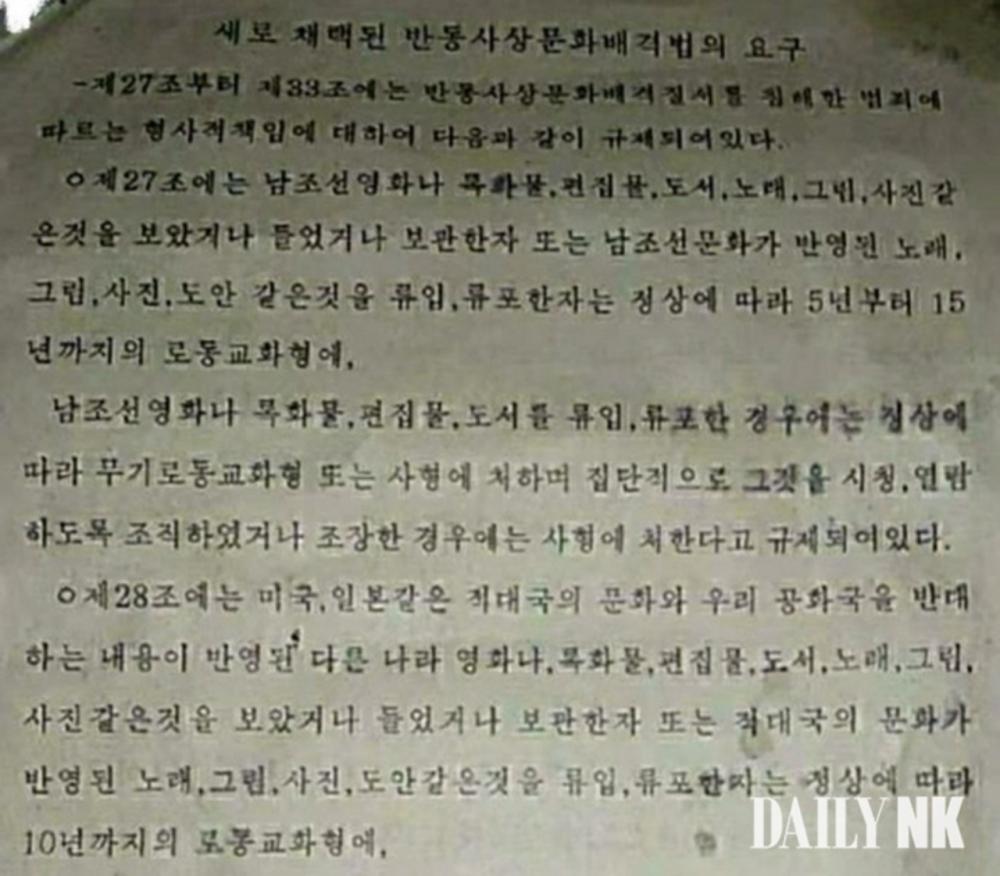 새로 채택된 반동사상문화배격법의 요구
-제27조부터 제33조에는 반동사상문화배격질서를 침해한 범죄에
따르는 형사적책임에 대하여 다음과 같이 규제되어있다.
ㅇ제27조에는 남조선영화나 록화물,편집물,도서,노래,그림,사진같
은것을 보았거나 들었거나 보관한자 또는 남조선문화가 반영된 노래,
그림,사진,도안 같은것을 류입,류포한자는 정상에 따라 5년부터 15
년까지의 로동교화형에,
남조선영화나 록화물,편집물,도서를 류입,류포한 경우에는 정상에
따라 무기로동교화형 또는 사형에 처하며 집단적으로 그것을 시청,열람
하도록 조직하였거나 조장한 경우에는 사형에 처한다고 규제되어있다.
ㅇ제28조에는 미국,일본같은 적대국의 문화와 우리 공화국을 반대
하는 내용이 반영된 다른 나라 영화나,록화물,편집물,도서,노래,그림,
사진같은것을 보았거나 들었거나 보관한자 또는 적대국의 문화가
반영된 노래,그림,사진,도안같은것을 류입,류포한자는 정상에 따라
10년까지의 로동교화형에,
DAILY NK